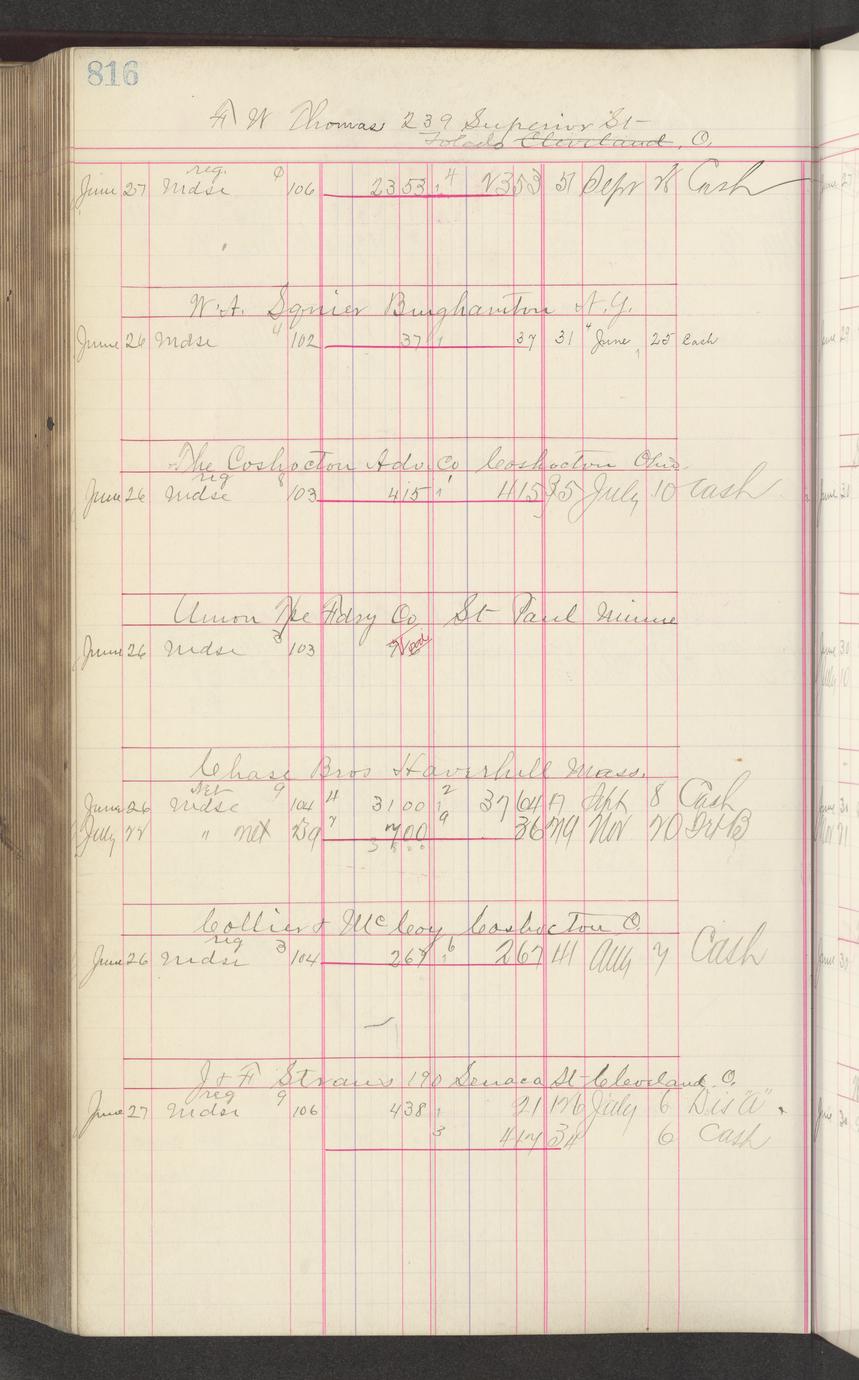 816
F W Thomas 239 Superior St
Toledo Cleveland, O.
reg.
June 27 Mdse 106 2353 4 2353 51 Sept 28 Cash
W.A. Squier Binghamton N.Y.
June 26 Mdse " 102 37 1 37 31 " June 25 Cash
The Coshocton Adv. Co Coshocton Ohio
reg
June 26 Mdse 8 103 415 1 415 35 July 10 Cash
Union Type Fdry Co St Paul Minne
June 26 Mdse 3 103
Chase Bros Haverhill Mass.
Net
June 26 Mdse 9 104 4 3100 2 3764 17 Sept 8 Cash
July 22 " net 239 7 700 9 36 79 Nov 20
Collier & McCoy Coshocton O.
reg
June 26 Mdse 3 104 267 6 267 41 Aug 7 Cash
J & F Straus 190 Senaca St Cleveland O.
reg
June 27 Mdse 9 106 438 1 21 126 July 6 Dis "A"
3 417 34 6 Cash